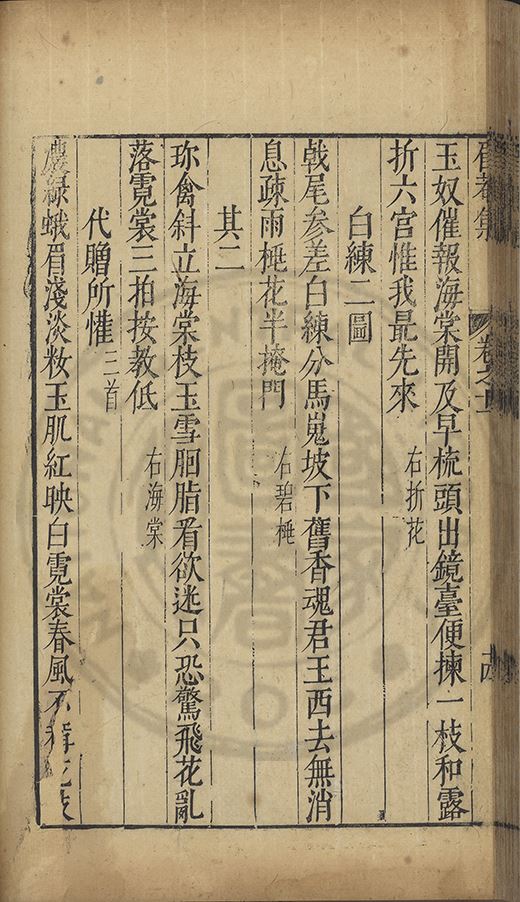 卷之
玉奴催報海棠開及早梳頭出鏡臺便揀一枝和露
折六宮惟我最先來 右折花
白練二圖
戟尾參差白練分馬嵬坡下舊香魂君王西去無消
息疎雨梔花半掩門 右碧梔
其二
珎禽斜立海棠枝玉雪胭脂看欲迷只恐驚飛花亂
落霓裳三拍按教低 右海棠
代贈所懽 三首
濃綠蛾眉淺淡粧玉肌紅映白霓裳春風不